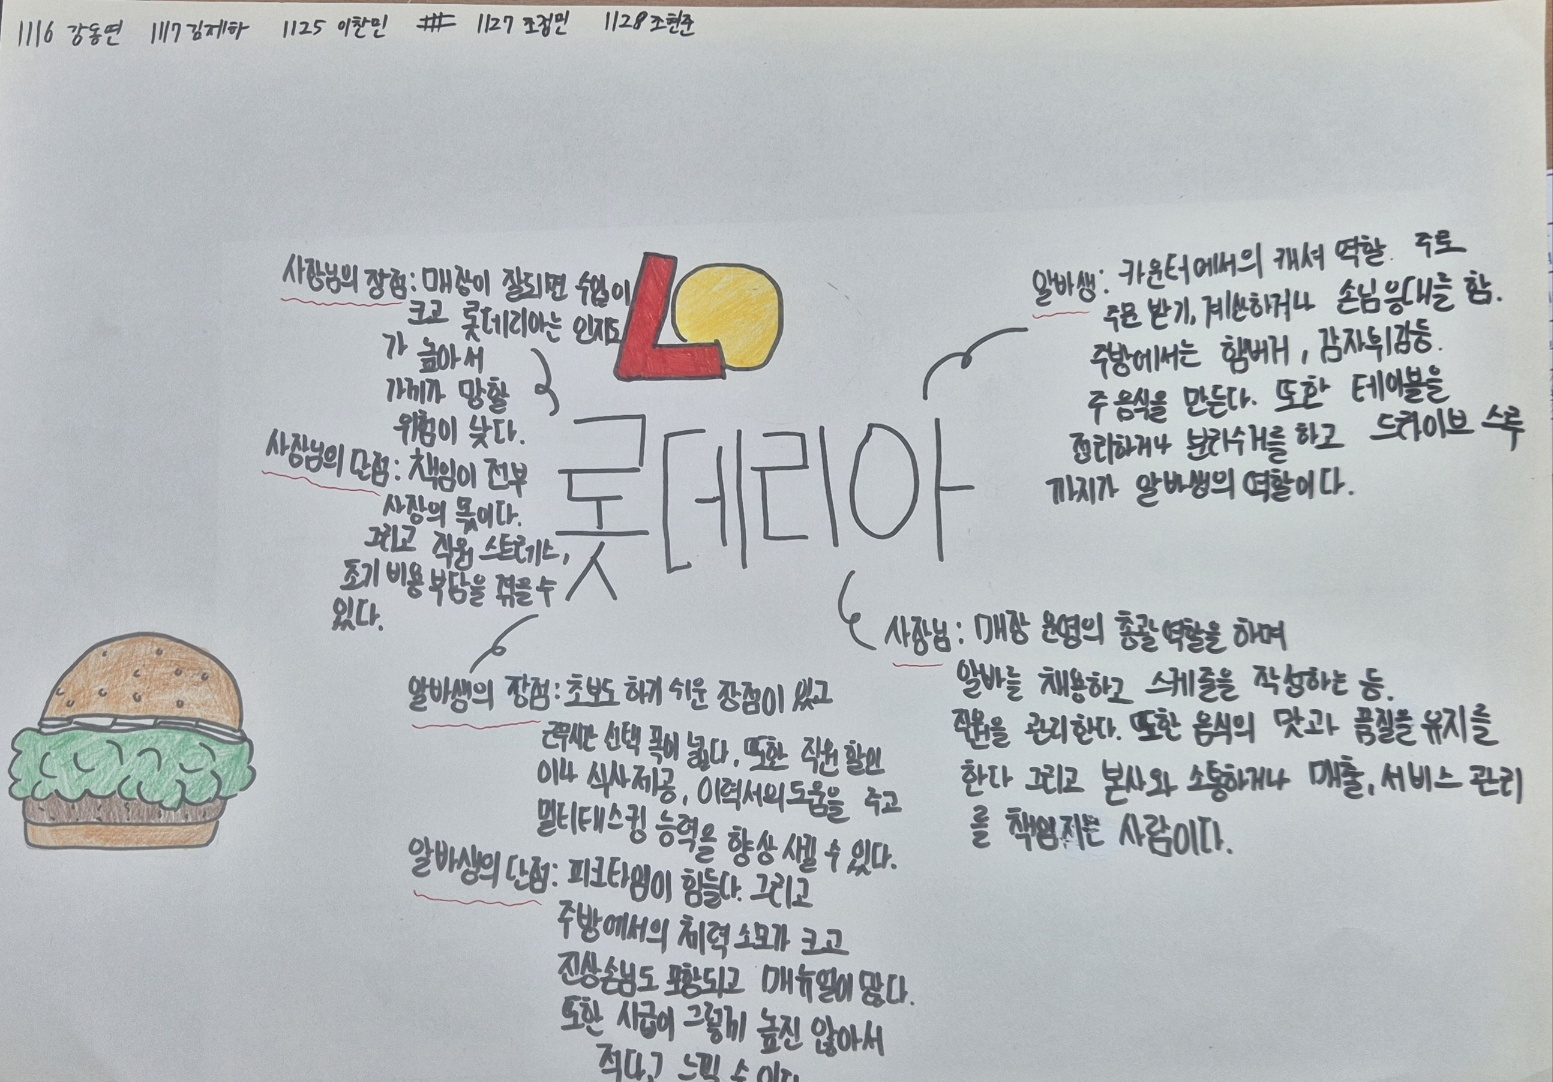 1116 강동연 1117 김제하 1125 이찬민 1127 조정민 1128 조현준
사장님의 장점 : 매장이 잘되면 수입이
크고 롯데리아는 인지도
가 높아서
가게가 망할
위험이 낮다.
사장님의 단점 : 책임이 전부
사장의 몫이다.
그리고 직원 스트레스,
초기 비용 부담을 겪을 수
있다.
롯데리아
알바생 : 카운터에서의 캐셔 역할. 주로
주문 받기, 계산하거나 손님 응대를 함.
주방에서는 햄버거, 감자튀김등.
주 음식을 만든다. 또한 테이블을
정리하거나 분리수거를 하고 드라이브 스루
까지가 알바생의 역할이다.
사장님 : 매장 운영의 총괄 역할을 하며
알바를 채용하고 스케줄을 작성하는 등.
직원을 관리한다. 또한 음식의 맛과 품질을 유지를
한다 그리고 본사와 소통하거나 매출, 서비스 관리
를 책임지는 사람이다.
알바생의 장점 : 초보도 하기 쉬운 장점이 있고
근무시간 선택 폭이 넓다. 또한 직원 할인
이나 식사제공, 이력서의 도움을 주고
멀티태스킹 능력을 향상 시킬 수 있다.
알바생의 단점 : 피크타임이 힘들다. 그리고
주방에서의 체력 소모가 크고
진상손님도 포함되고 매뉴얼이 많다.
또한 시급이 그렇게 높진 않아서
적다고 느낄 수 있다